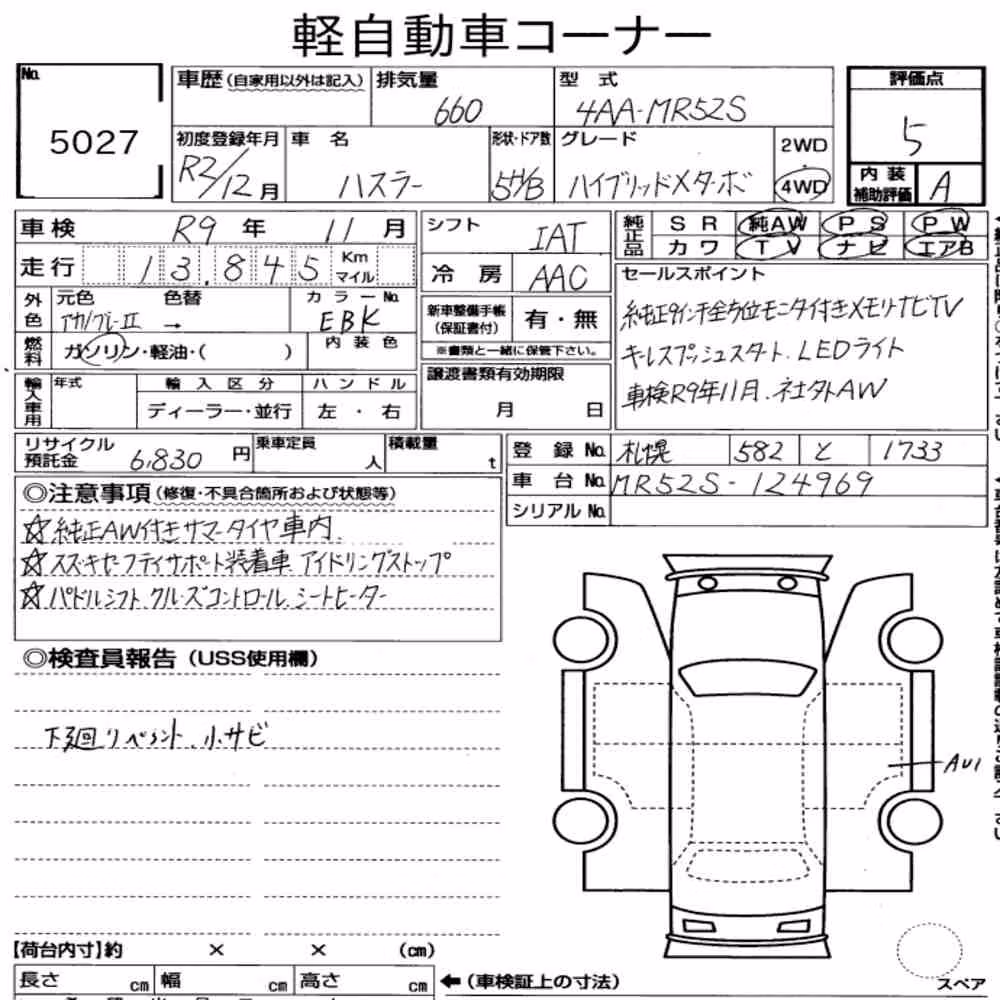 軽自動車コーナー
No.
5027
車歴(自家用以外は記入)
排気量
660
型式
4AA-MR52S
評価点
5
初度登録年月
R2/12月
車名
ハスラー
形状・ドア数
5H/B
グレード
ハイブリッドXターボ
2WD
4WD
内装
補助評価
A
車検 R9年 11月
走行 13,845 Km
マイル
シフト
IAT
冷房 AAC
純正品
SR 純AW PS PW
カワ TV ナビ エアB
外色
元色 色替
→
カラーNo.
EBK
燃料
ガソリン・軽油・( )
内装色
新車整備手帳
(保証書付)
有・無
※書類と一緒に保管下さい。
セールスポイント
純正9インチ全方位モニター付きメモリナビTV
キーレスプッシュスタート、LEDライト
車検R9年11月、社外AW
輸入車用
年式
輸入区分
ディーラー・並行
ハンドル
左・右
譲渡書類有効期限
月 日
リサイクル
預託金 6,830 円
乗車定員
人
積載量
t
登録No. 札幌 582 と 1733
車台No. MR52S-124969
シリアルNo.
◎注意事項(修復・不具合箇所および状態等)
☆純正AW付きサマータイヤ車内、
☆スズキセーフティサポート装着車 アイドリングストップ
☆パドルシフト クルーズコントロール、シートヒーター
◎検査員報告(USS使用欄)
下廻リペイント、小サビ
AU1
【荷台内寸】約 × × (cm)
長さ cm 幅 cm 高さ cm
←(車検証上の寸法)
スペア